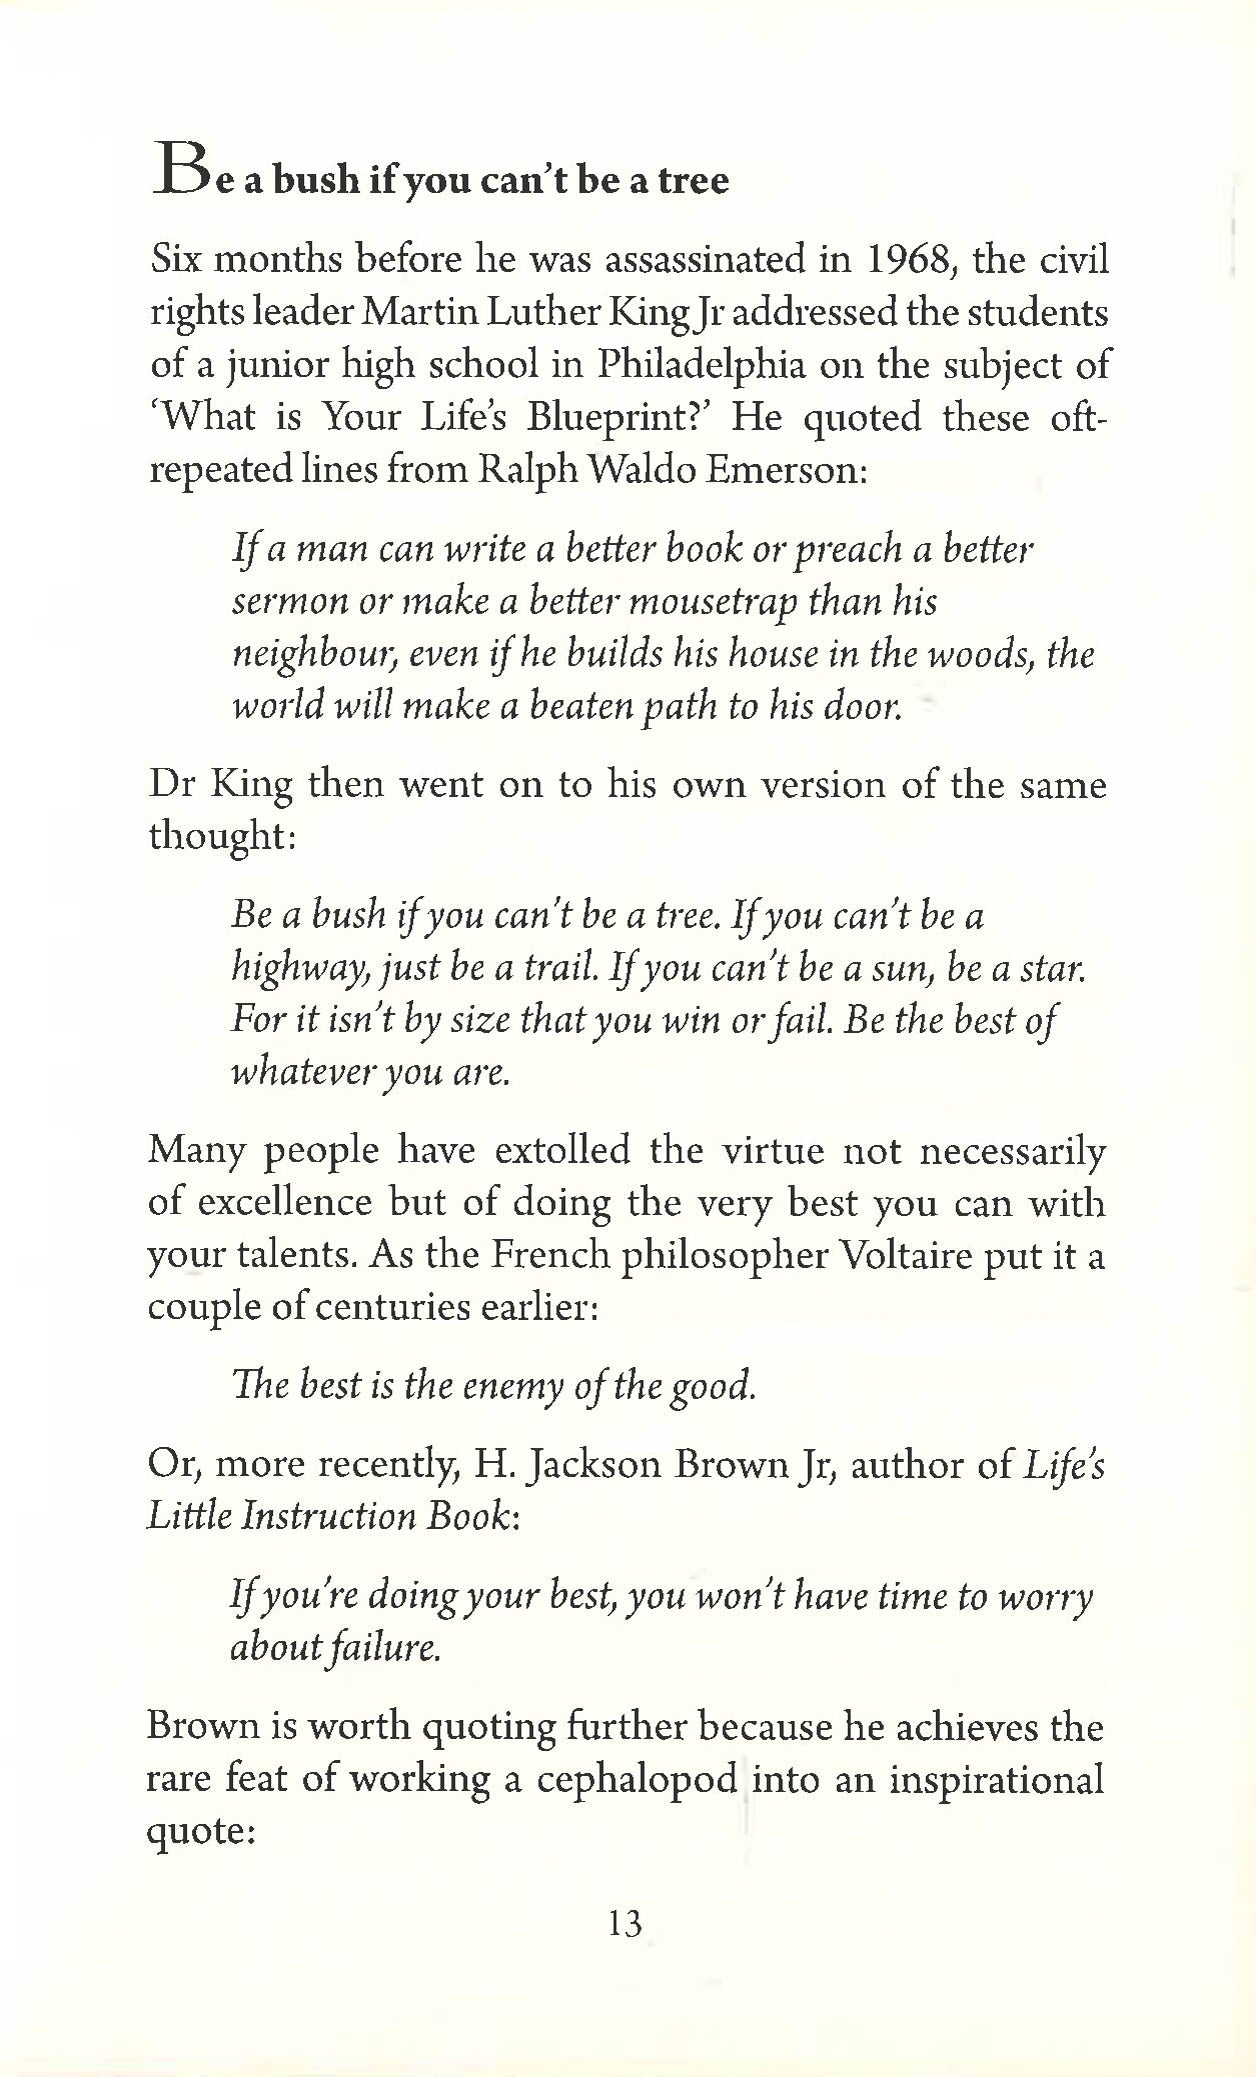 Be a bush if you can't be a tree
Six months before he was assassinated in 1968, the civil
rights leader Martin Luther King Jr addressed the students
of a junior high school in Philadelphia on the subject of
‘What is Your Life's Blueprint?’ He quoted these oft-
repeated lines from Ralph Waldo Emerson:
If a man can write a better book or preach a better
sermon or make a better mousetrap than his
neighbour, even if he builds his house in the woods, the
world will make a beaten path to his door.
Dr King then went on to his own version of the same
thought:
Be a bush if you can't be a tree. If you can't be a
highway, just be a trail. If you can't be a sun, be a star.
For it isn't by size that you win or fail. Be the best of
whatever you are.
Many people have extolled the virtue not necessarily
of excellence but of doing the very best you can with
your talents. As the French philosopher Voltaire put it a
couple of centuries earlier:
The best is the enemy of the good.
Or, more recently, H. Jackson Brown Jr, author of Life's
Little Instruction Book:
If you're doing your best, you won't have time to worry
about failure.
Brown is worth quoting further because he achieves the
rare feat of working a cephalopod into an inspirational
quote:
13